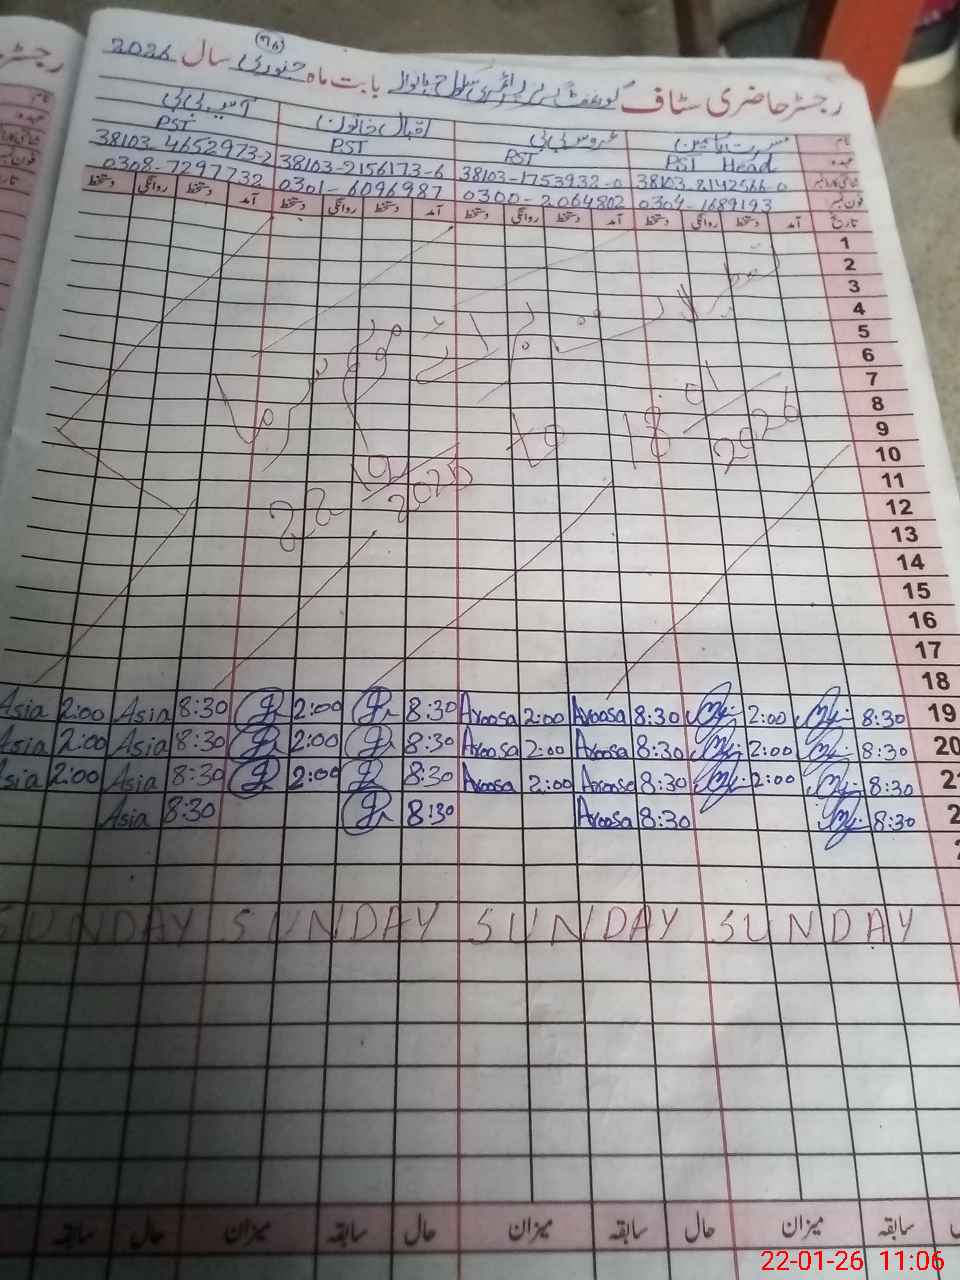 (76)
رجسٹر حاضری سٹاف گورنمنٹ پرائمری سکول بابت ماہ جنوری سال 2026
نام مسرت یاسمین عروس بی بی اقبال خاتون آسیہ بی بی
عہدہ PST Head PST PST PST
شناختی کارڈ نمبر 38103-2142566-0 38103-1753932-0 38103-2156173-6 38103-4652973-2
فون نمبر 0304-1689193 0300-2064802 0301-6096987 0308-7297732
تاریخ آمد دستخط روانگی دستخط آمد دستخط روانگی دستخط آمد دستخط روانگی دستخط آمد دستخط روانگی دستخط
1
2
3
4
5
6
7
8
9
10
11
12
13
14
15
16
17
18
موسم سرما
22-12-2025 to 18-01-2026
Asia 2:00 Asia 8:30 2:00 8:30 Aroosa 2:00 Aroosa 8:30 2:00 8:30 19
Asia 2:00 Asia 8:30 2:00 8:30 Aroosa 2:00 Aroosa 8:30 2:00 8:30 20
Asia 2:00 Asia 8:30 2:00 8:30 Aroosa 2:00 Aroosa 8:30 2:00 8:30 2
Asia 8:30 8:30 Aroosa 8:30 8:30 2
SUNDAY SUNDAY SUNDAY SUNDAY
سابقہ میزان حال سابقہ میزان حال سابقہ میزان حال سابقہ
22-01-26 11:06